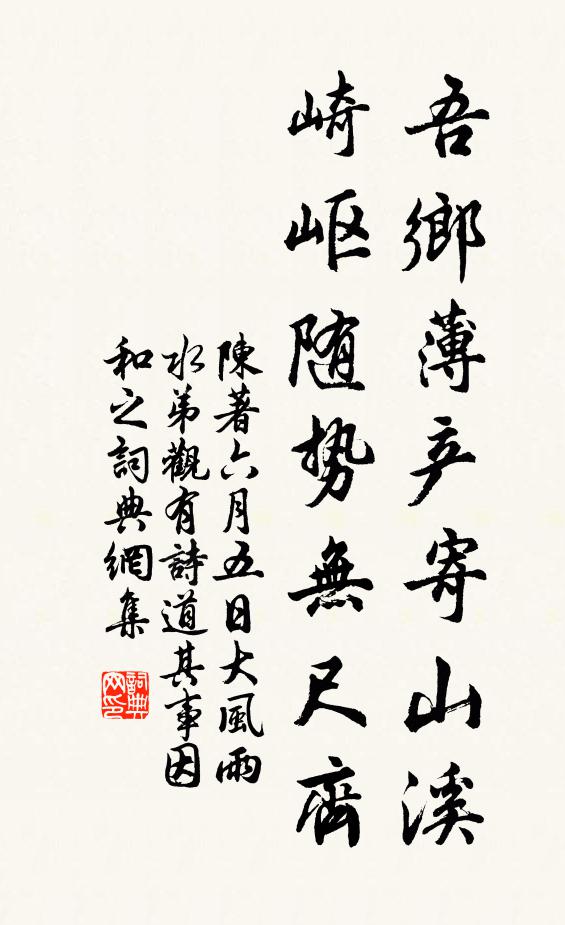 吾鄉薄产寄山溪
崎岖随势無尺齊
陳著六月五日大風雨
水弟觀有詩道其事因
和之詞典網集
詞典网印